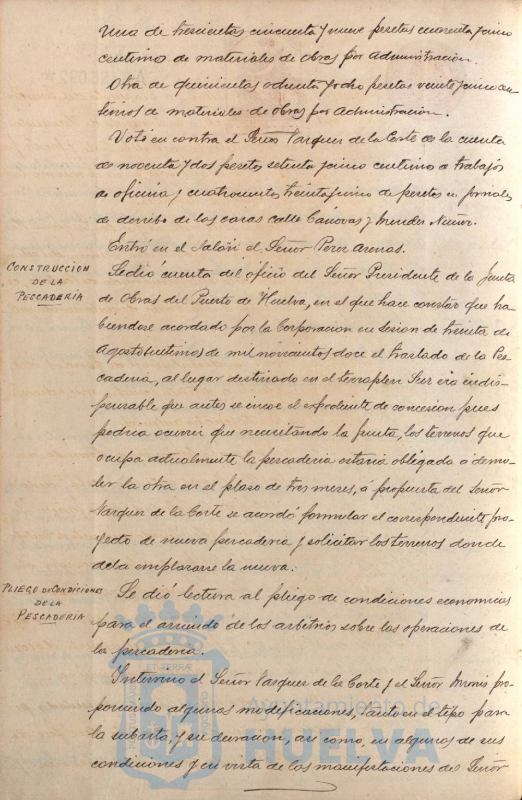 Una de trescientas cincuenta y nueve pesetas cuarenta y cinco
centimos de materiales de obras por administración.
Otra de quinientas ochenta y ocho pesetas veinte y cinco cen-
timos de materiales de obras por administración.
Votó en contra el Señor Vazquez de la Corte de la cuenta
de noventa y dos pesetas setenta y cinco centimos a trabajos
de oficina y cuatrocientas treinta y cinco de pesetas en jornales
de derribo de las casas calle Cánovas y Mendez Nuñez.
Entró en el Salón el Señor Perez Arenas.
CONSTRUCCION
DE LA
PESCADERIA
Se dió cuenta del oficio del Señor Presidente de la Junta
de Obras del Puerto de Huelva, en el que hace constar que ha-
biendose acordado por la Corporacion en sesion de treinta de
Agosto de mil novecientos doce el traslado de la Pes-
caderia, al lugar destinado en el terraplen Sur era indis-
pensable que antes se incoe el expediente de concesion pues
podria ocurrir que necesitando la Junta, los terrenos que
ocupa actualmente la pescaderia estaria obligado a demo-
ler la otra en el plaso de tres meses, a propuesta del Señor
Vazquez de la Corte se acordó formular el correspondiente pro-
yecto de nueva pescaderia y solicitar los terrenos donde
deba emplazarse la nueva.
PLIEGO DE CONDICIONES
DE LA
PESCADERIA
Se dió lectura al pliego de condiciones economicas
para el arriendo de los arbitrios sobre las operaciones de
la pescaderia.
Intervino el Señor Vazquez de la Corte y el Señor pro-
poniendo algunas modificaciones, tanto en el tipo para
la subasta, y su duracion, asi como, en algunas de sus
condiciones y en vista de las manifestaciones del Señor
Ayuntamiento de
HUELVA